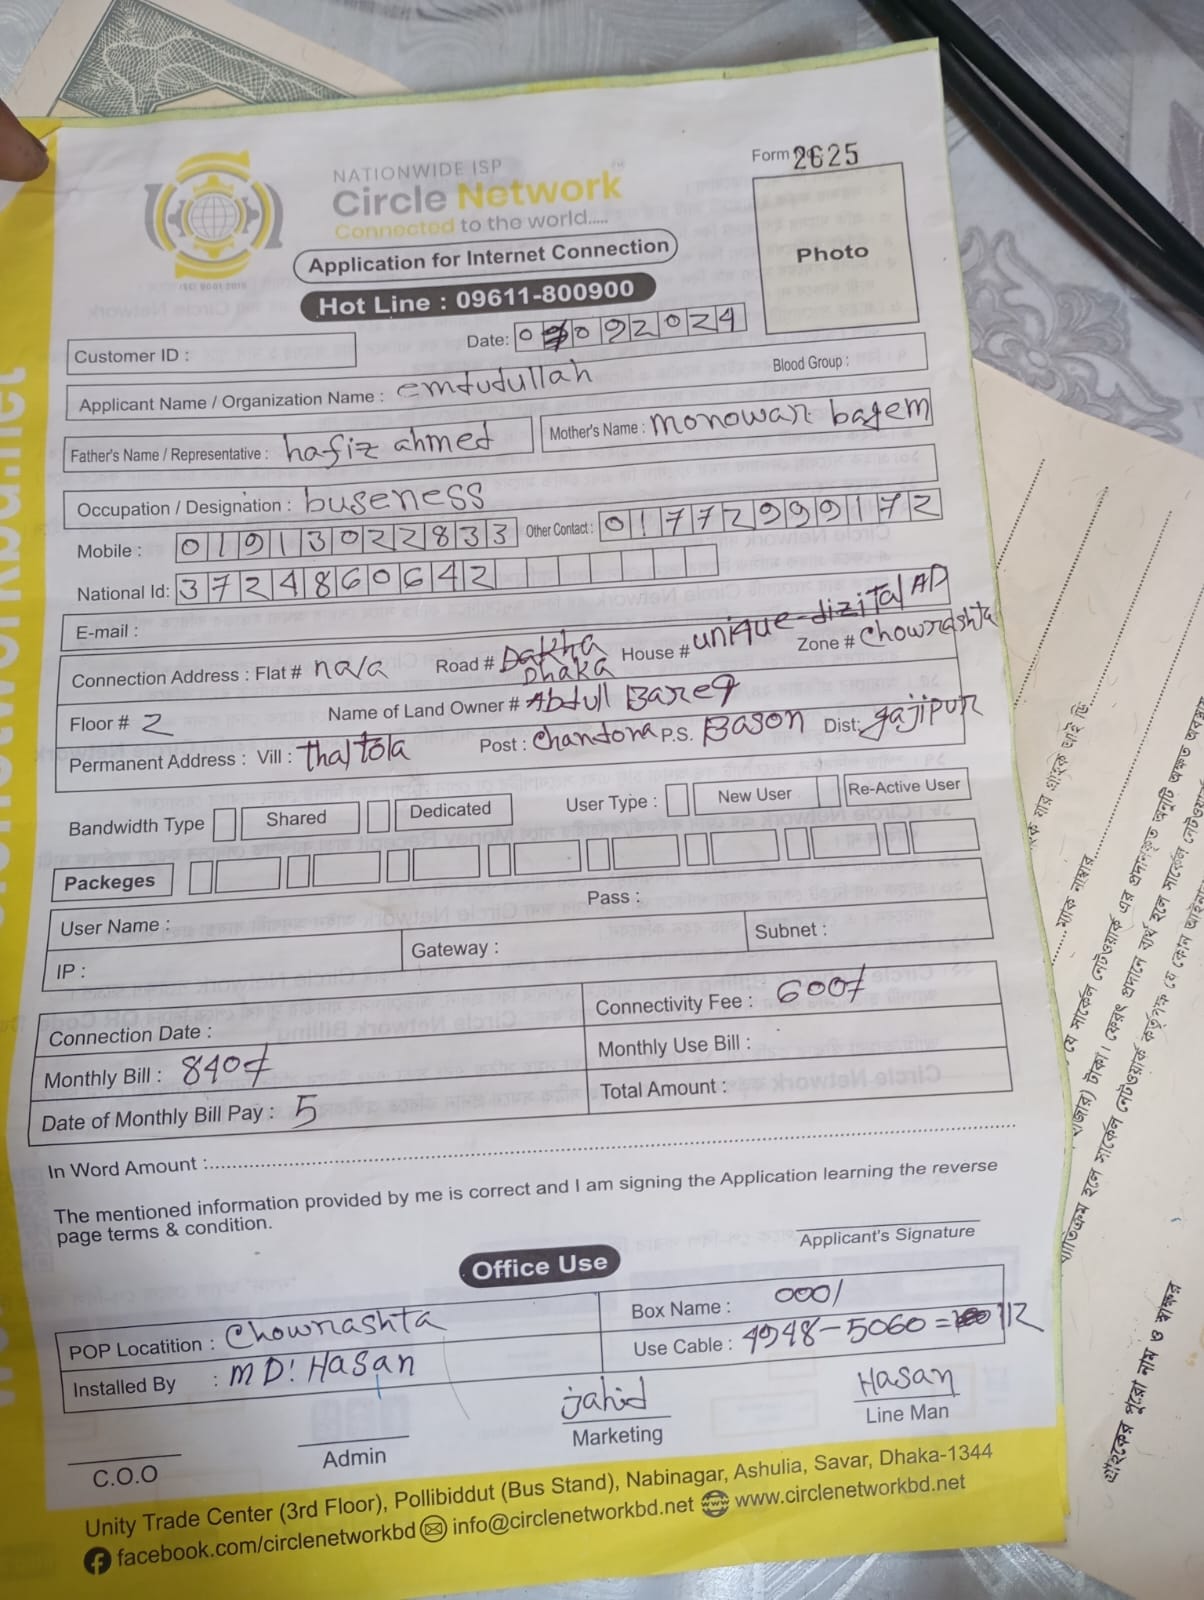 NATIONWIDE ISP
Circle Network™
Connected to the world.....
Form 2625
Photo
ISO 9001:2015
Application for Internet Connection
Hot Line : 09611-800900
Customer ID :
Date: 0 092024
Applicant Name / Organization Name : emdudullah
Blood Group :
Father's Name / Representative : hafiz ahmed
Mother's Name : monowar bagem
Occupation / Designation : buseness
Mobile : 01913022833
Other Contact : 01772999172
National Id: 3724860642
E-mail :
Connection Address : Flat # na/a
Road # Dakha Dhaka
House # unique dizital AD
Zone # Chowrashta
Floor # 2
Name of Land Owner # Abdull Bareq
Permanent Address : Vill : thaltola
Post : Chandona
P.S. Bason
Dist: gajipur
Bandwidth Type
Shared
Dedicated
User Type :
New User
Re-Active User
Packeges
User Name :
Pass :
IP :
Gateway :
Subnet :
Connection Date :
Connectivity Fee : 600/
Monthly Bill : 840/
Monthly Use Bill :
Date of Monthly Bill Pay : 5
Total Amount :
In Word Amount :
The mentioned information provided by me is correct and I am signing the Application learning the reverse
page terms & condition.
Applicant's Signature
Office Use
POP Locatition : Chowrashta
Box Name : 0001
Installed By : MD: Hasan
Use Cable : 4948-5060= 112
C.O.O
Admin
jahid
Marketing
Hasan
Line Man
Unity Trade Center (3rd Floor), Pollibiddut (Bus Stand), Nabinagar, Ashulia, Savar, Dhaka-1344
facebook.com/circlenetworkbd info@circlenetworkbd.net www.circlenetworkbd.net
গ্রাহকের পুরো নাম ও স্বাক্ষর